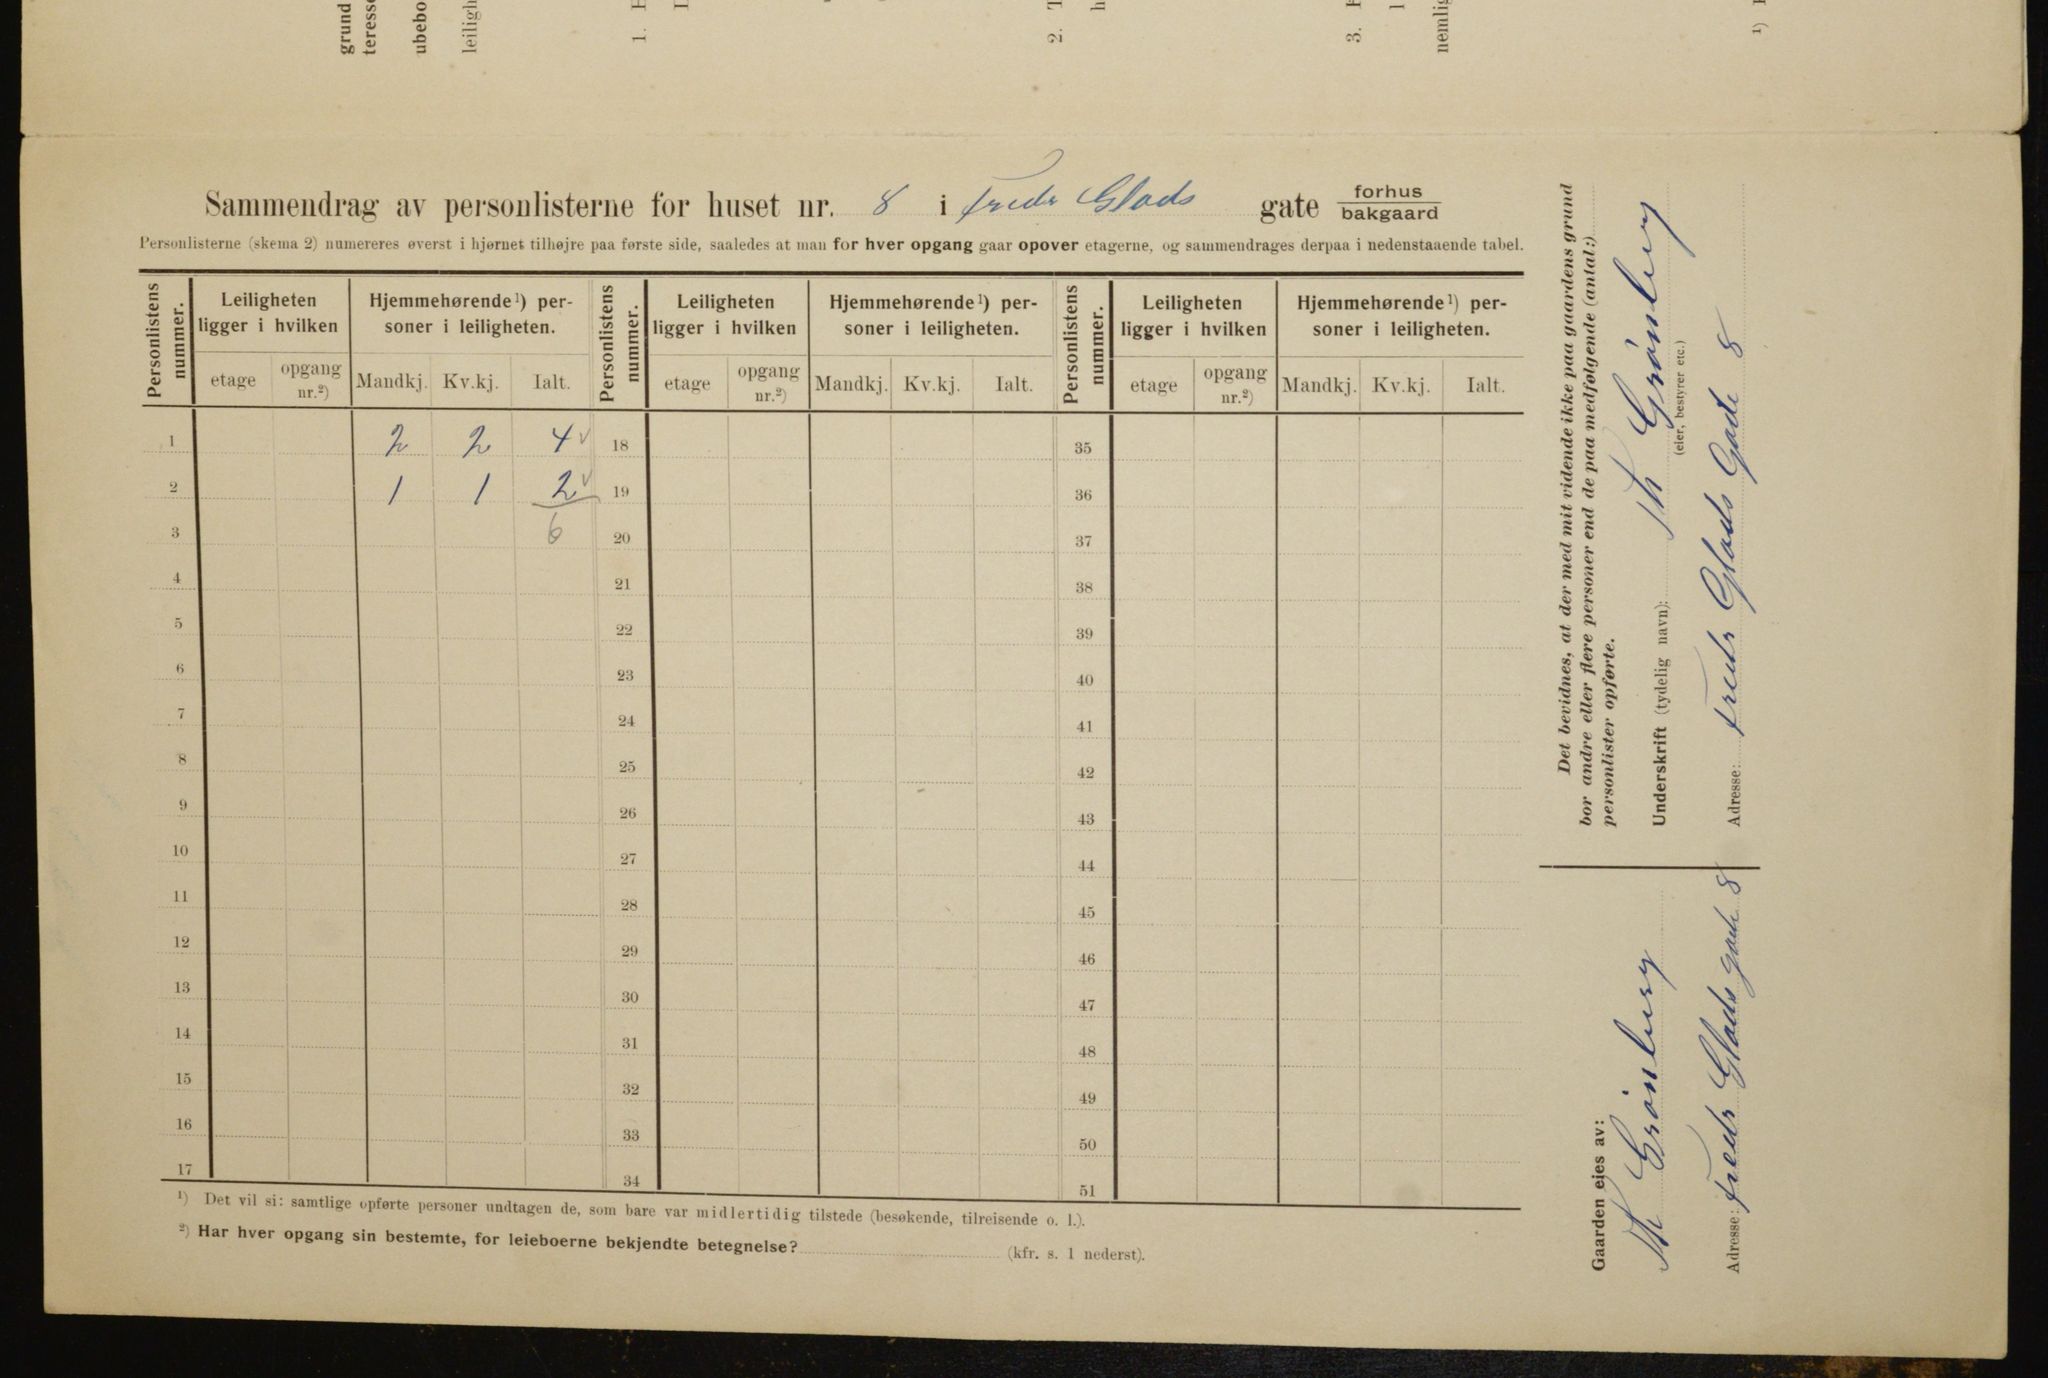 grund
teresse
ubebo
leiligh
1.
2.
3.
nemlig
¹)
Sammendrag av personlisterne for huset nr. 8 i Fredr Glads gate forhus/bakgaard
Personlisterne (skema 2) numereres øverst i hjørnet tilhøjre paa første side, saaledes at man for hver opgang gaar opover etagerne, og sammendrages derpaa i nedenstaaende tabel.
Personlistens nummer. Leiligheten ligger i hvilken Hjemmehørende¹) personer i leiligheten. Personlistens nummer. Leiligheten ligger i hvilken Hjemmehørende¹) personer i leiligheten. Personlistens nummer. Leiligheten ligger i hvilken Hjemmehørende¹) personer i leiligheten.
etage opgang nr.²) Mandkj. Kv.kj. Ialt. etage opgang nr.²) Mandkj. Kv.kj. Ialt. etage opgang nr.²) Mandkj. Kv.kj. Ialt.
1 2 2 4 v 18 35
2 1 1 2 v 19 36
3 6 20 37
4 21 38
5 22 39
6 23 40
7 24 41
8 25 42
9 26 43
10 27 44
11 28 45
12 29 46
13 30 47
14 31 48
15 32 49
16 33 50
17 34 51
¹) Det vil si: samtlige opførte personer undtagen de, som bare var midlertidig tilstede (besøkende, tilreisende o. l.).
²) Har hver opgang sin bestemte, for leieboerne bekjendte betegnelse? (kfr. s. 1 nederst).
Det bevidnes, at der med mit vidende ikke paa gaardens grund
bor andre eller flere personer end de paa medfølgende (antal:)
personlister opførte.
Underskrift (tydelig navn): Th Grönberg
(eier, bestyrer etc.)
Adresse: Fredr Glads Gade 8
Gaarden ejes av:
Th Grönberg
Adresse: Fredr Glads gade 8